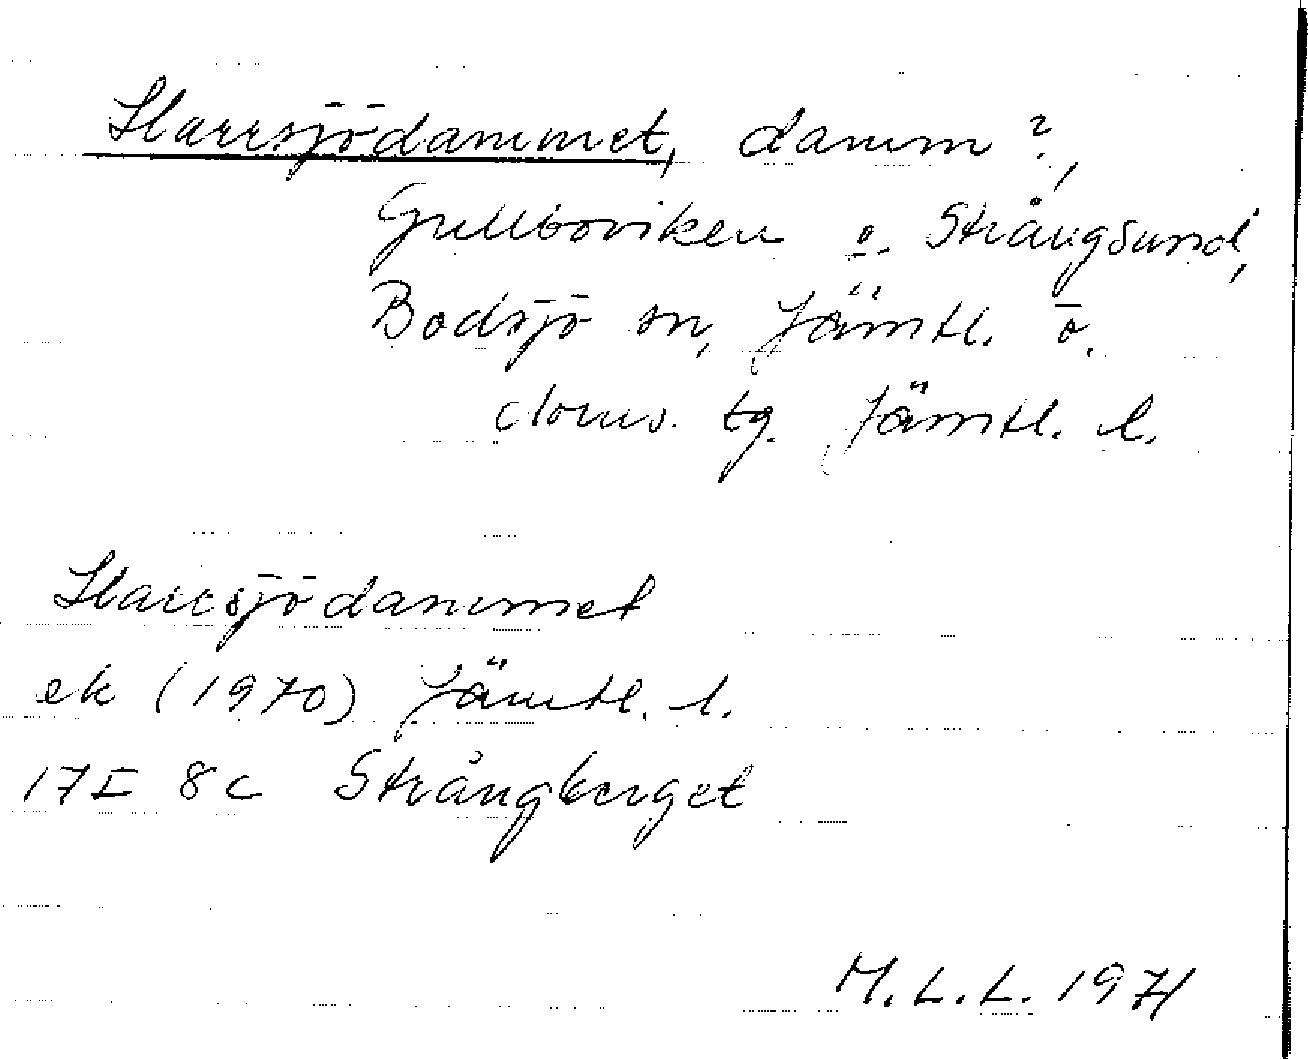 Starrsjödammet, damm?,
Gullboviken o. Strångsund,
Bodsjö sn, Jämtl. ö.
doms. tg. Jämtl. l.
Starrsjödammet
ek (1970) Jämtl. l.
17E 8c Strångberget
M.L.L. 1971